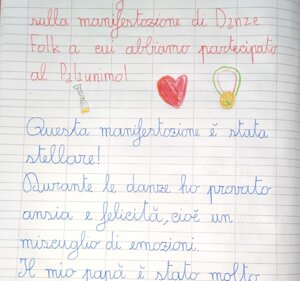 sulla manifestazione di Danze
Folk a cui abbiamo partecipato
al Palaunimol
Questa manifestazione è stata
stellare!
Durante le danze ho provato
ansia e felicità, cioè un
miscuglio di emozioni.
Il mio papà è stato molto